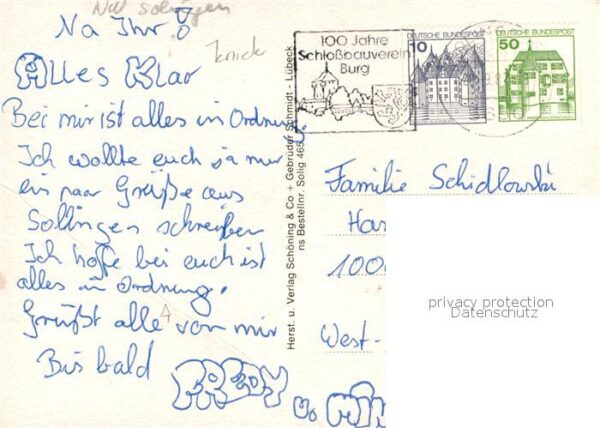 NW Solingen
knick
Na Ihr!
Alles Klar
Bei mir ist alles in Ordnung.
Ich wollte euch ja nur
ein paar Grüße aus
Sollingen schreiben
Ich hoffe bei euch ist
alles in Ordnung.
Grüßt alle von mir
Bis bald
FREDY u.
Herst. u. Verlag Schöning & Co + Gebrüder Schmidt - Lübeck
ns Bestellnr. Solig 465
100 Jahre
Schloßbauverein
Burg
DEUTSCHE BUNDESPOST
10
DEUTSCHE BUNDESPOST
50
Familie Schidlowski
Has
100
West-
privacy protection
Datenschutz